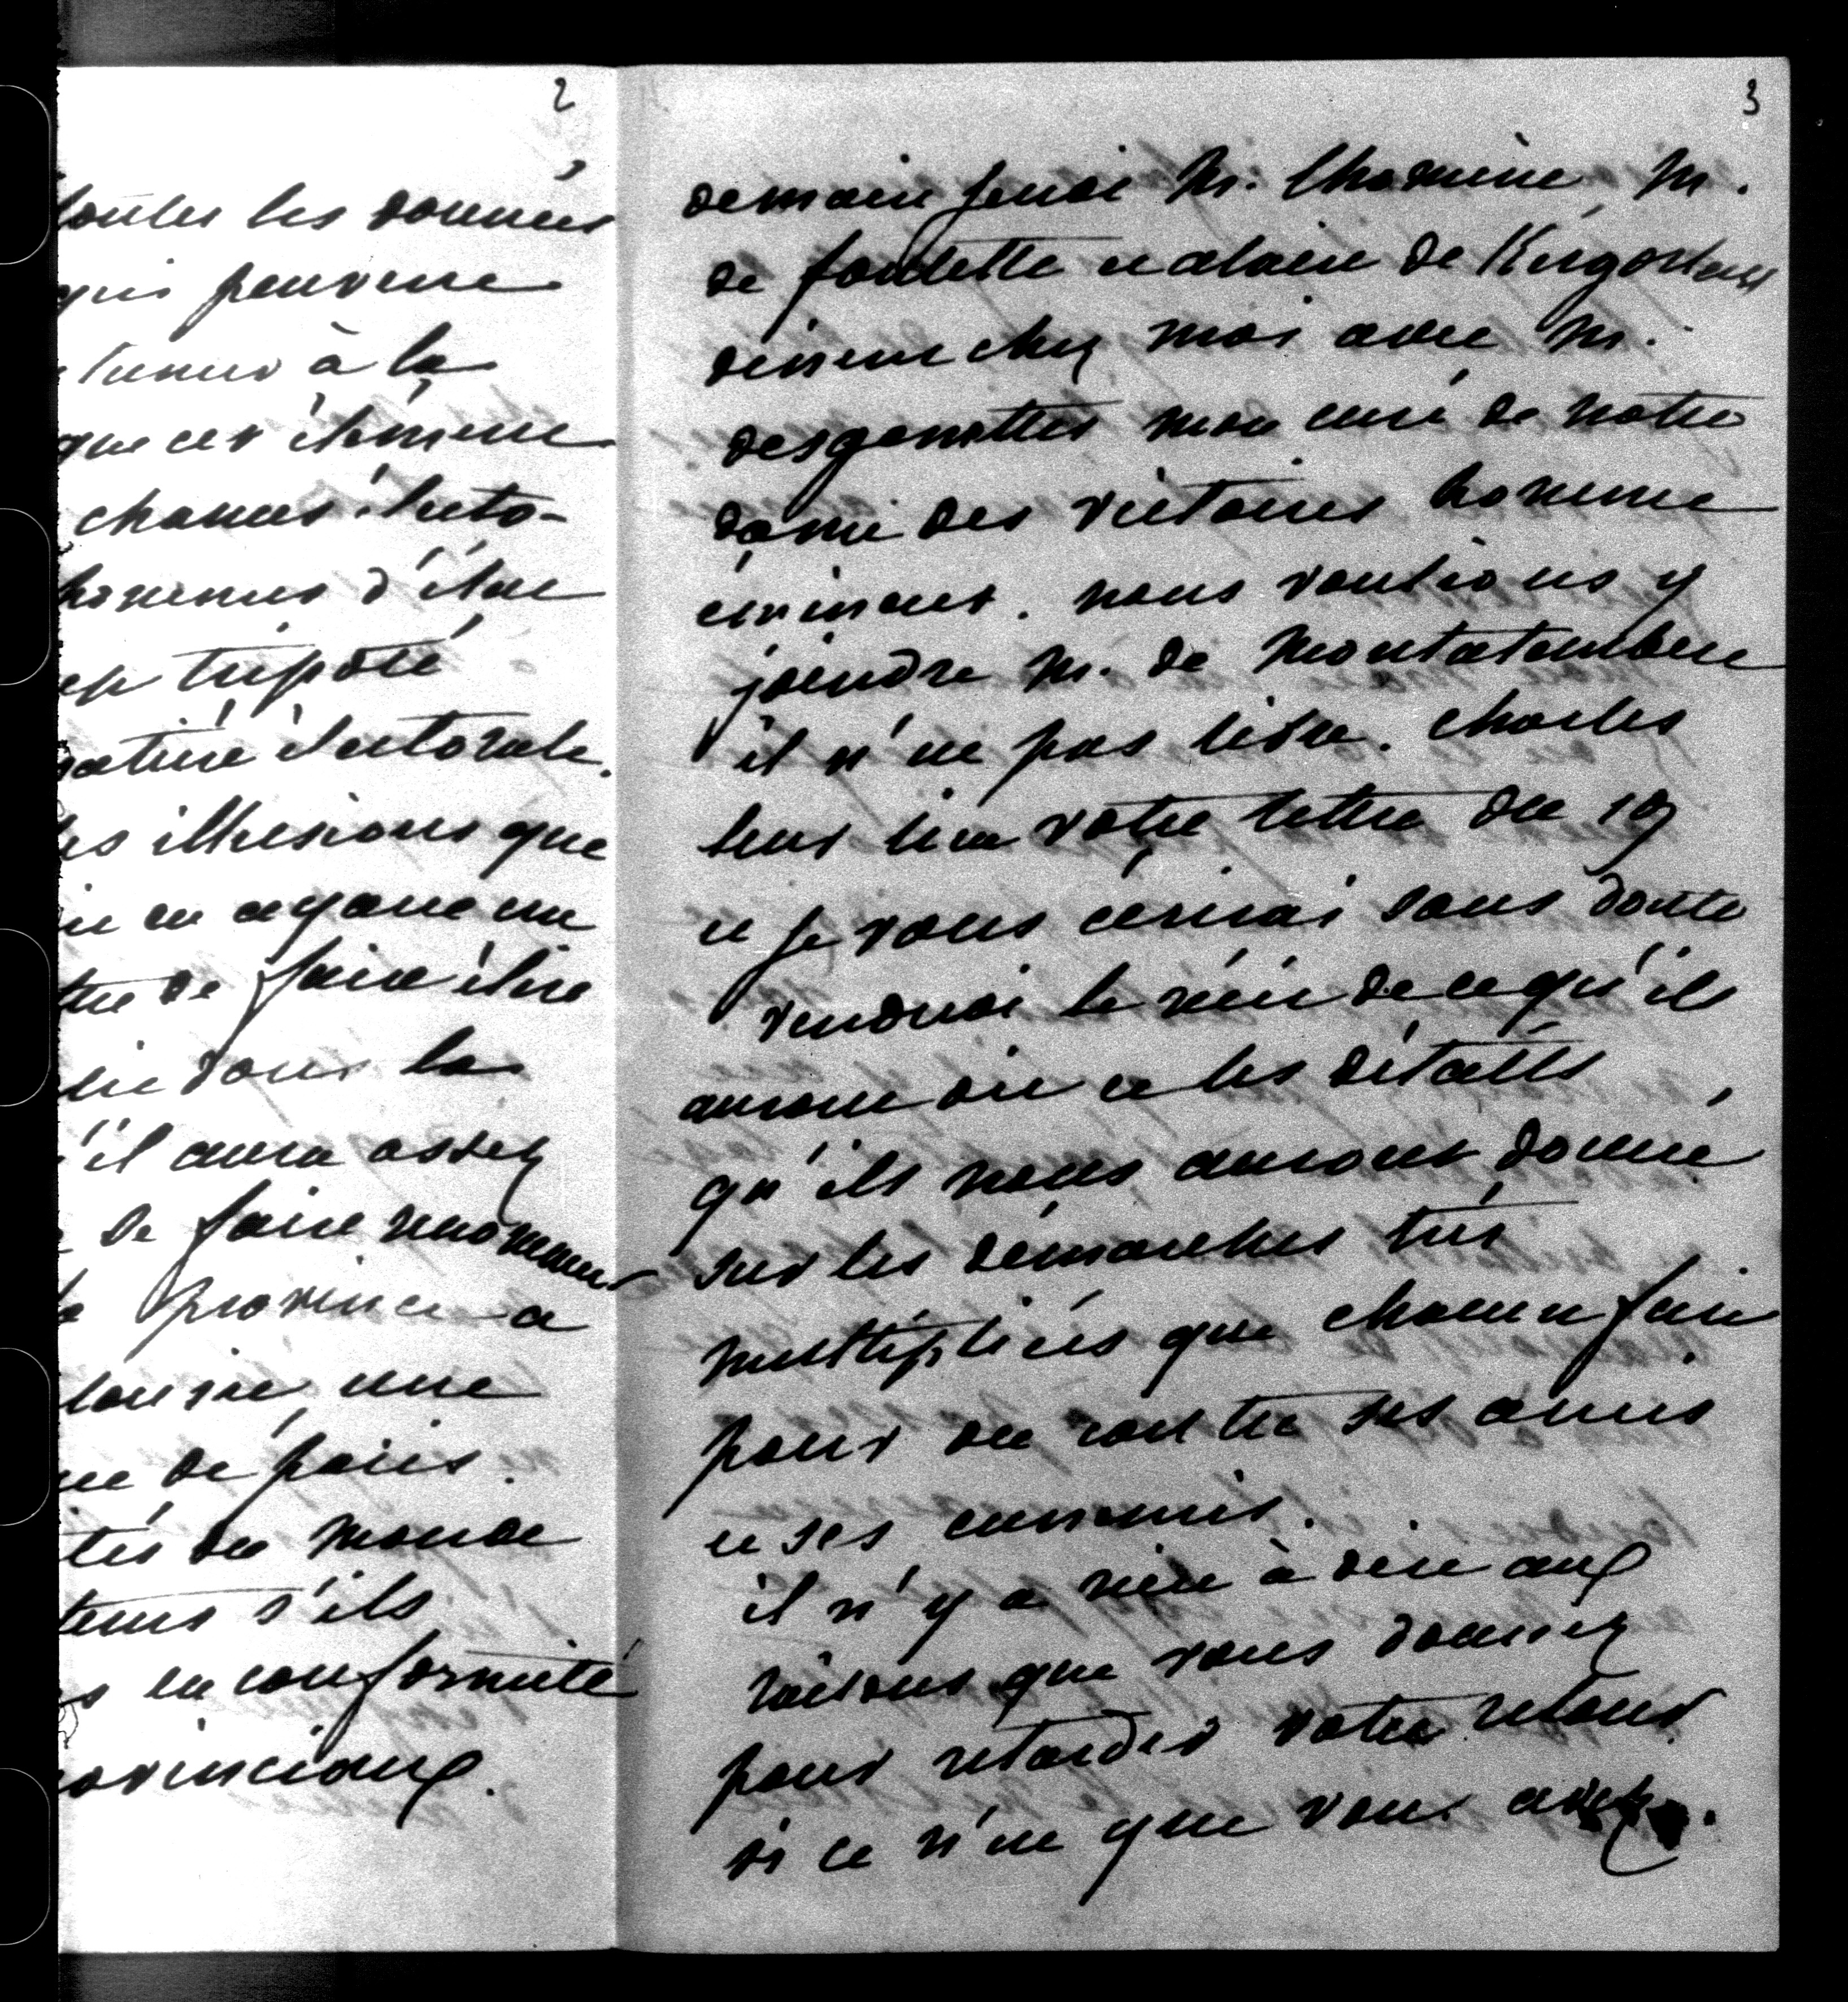 2
toutes les données
qui peuvent
à la
que cet élément
chances électo-
hommes d'état
trop tripoté
matière électorale.
les illusions que
en ayant un
de faire élire
dans la
'il aura assez
de faire renommer
province a
une
de paris.
du monde
s'ils
en conformité
provinciaux.
3
demain jeudi M. Chamin M.
de foulette et alain de Kergorlay
dinent chez moi avec M.
desgenettes mon curé de notre
dame des victoires homme
éminent. nous voulions y
joindre M. de Montalembert
il n'est pas libre. Charles
leur lira votre lettre du 19
et je vous écrirai sans doute
vendredi le récit de ce qu'ils
auront dit et les détails
qu'ils nous auront donné
sur les démarches très
multipliés que chacun fait
pour ou contre ses amis
et ses ennemis.
il n'y a rien à dire aux
raisons que vous donnez
pour retarder votre retour
si ce n'est que vous avez